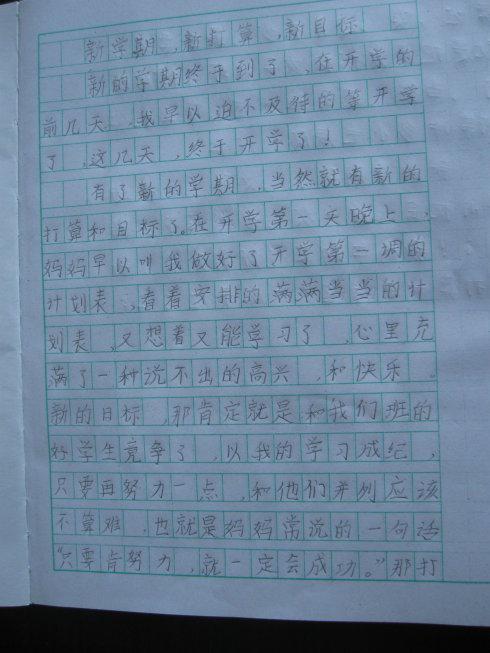 新学期,新打算,新目标
新的学期终于到了,在开学的
前几天,我早以迫不及待的等开学
了,这几天,终于开学了!
有了新的学期,当然就有新的
打算和目标了。在开学第一天晚上,
妈妈早以叫我做好了开学第一调的
计划表,看着安排的满满当当的计
划表,又想着又能学习了,心里充
满了一种说不出的高兴,和快乐。
新的目标,那肯定就是和我们班的
好学生竞争了,以我的学习成纪,
只要再努力一点,和他们并列应该
不算难,也就是妈妈常说的一句话
“只要肯努力,就一定会成功。”那打